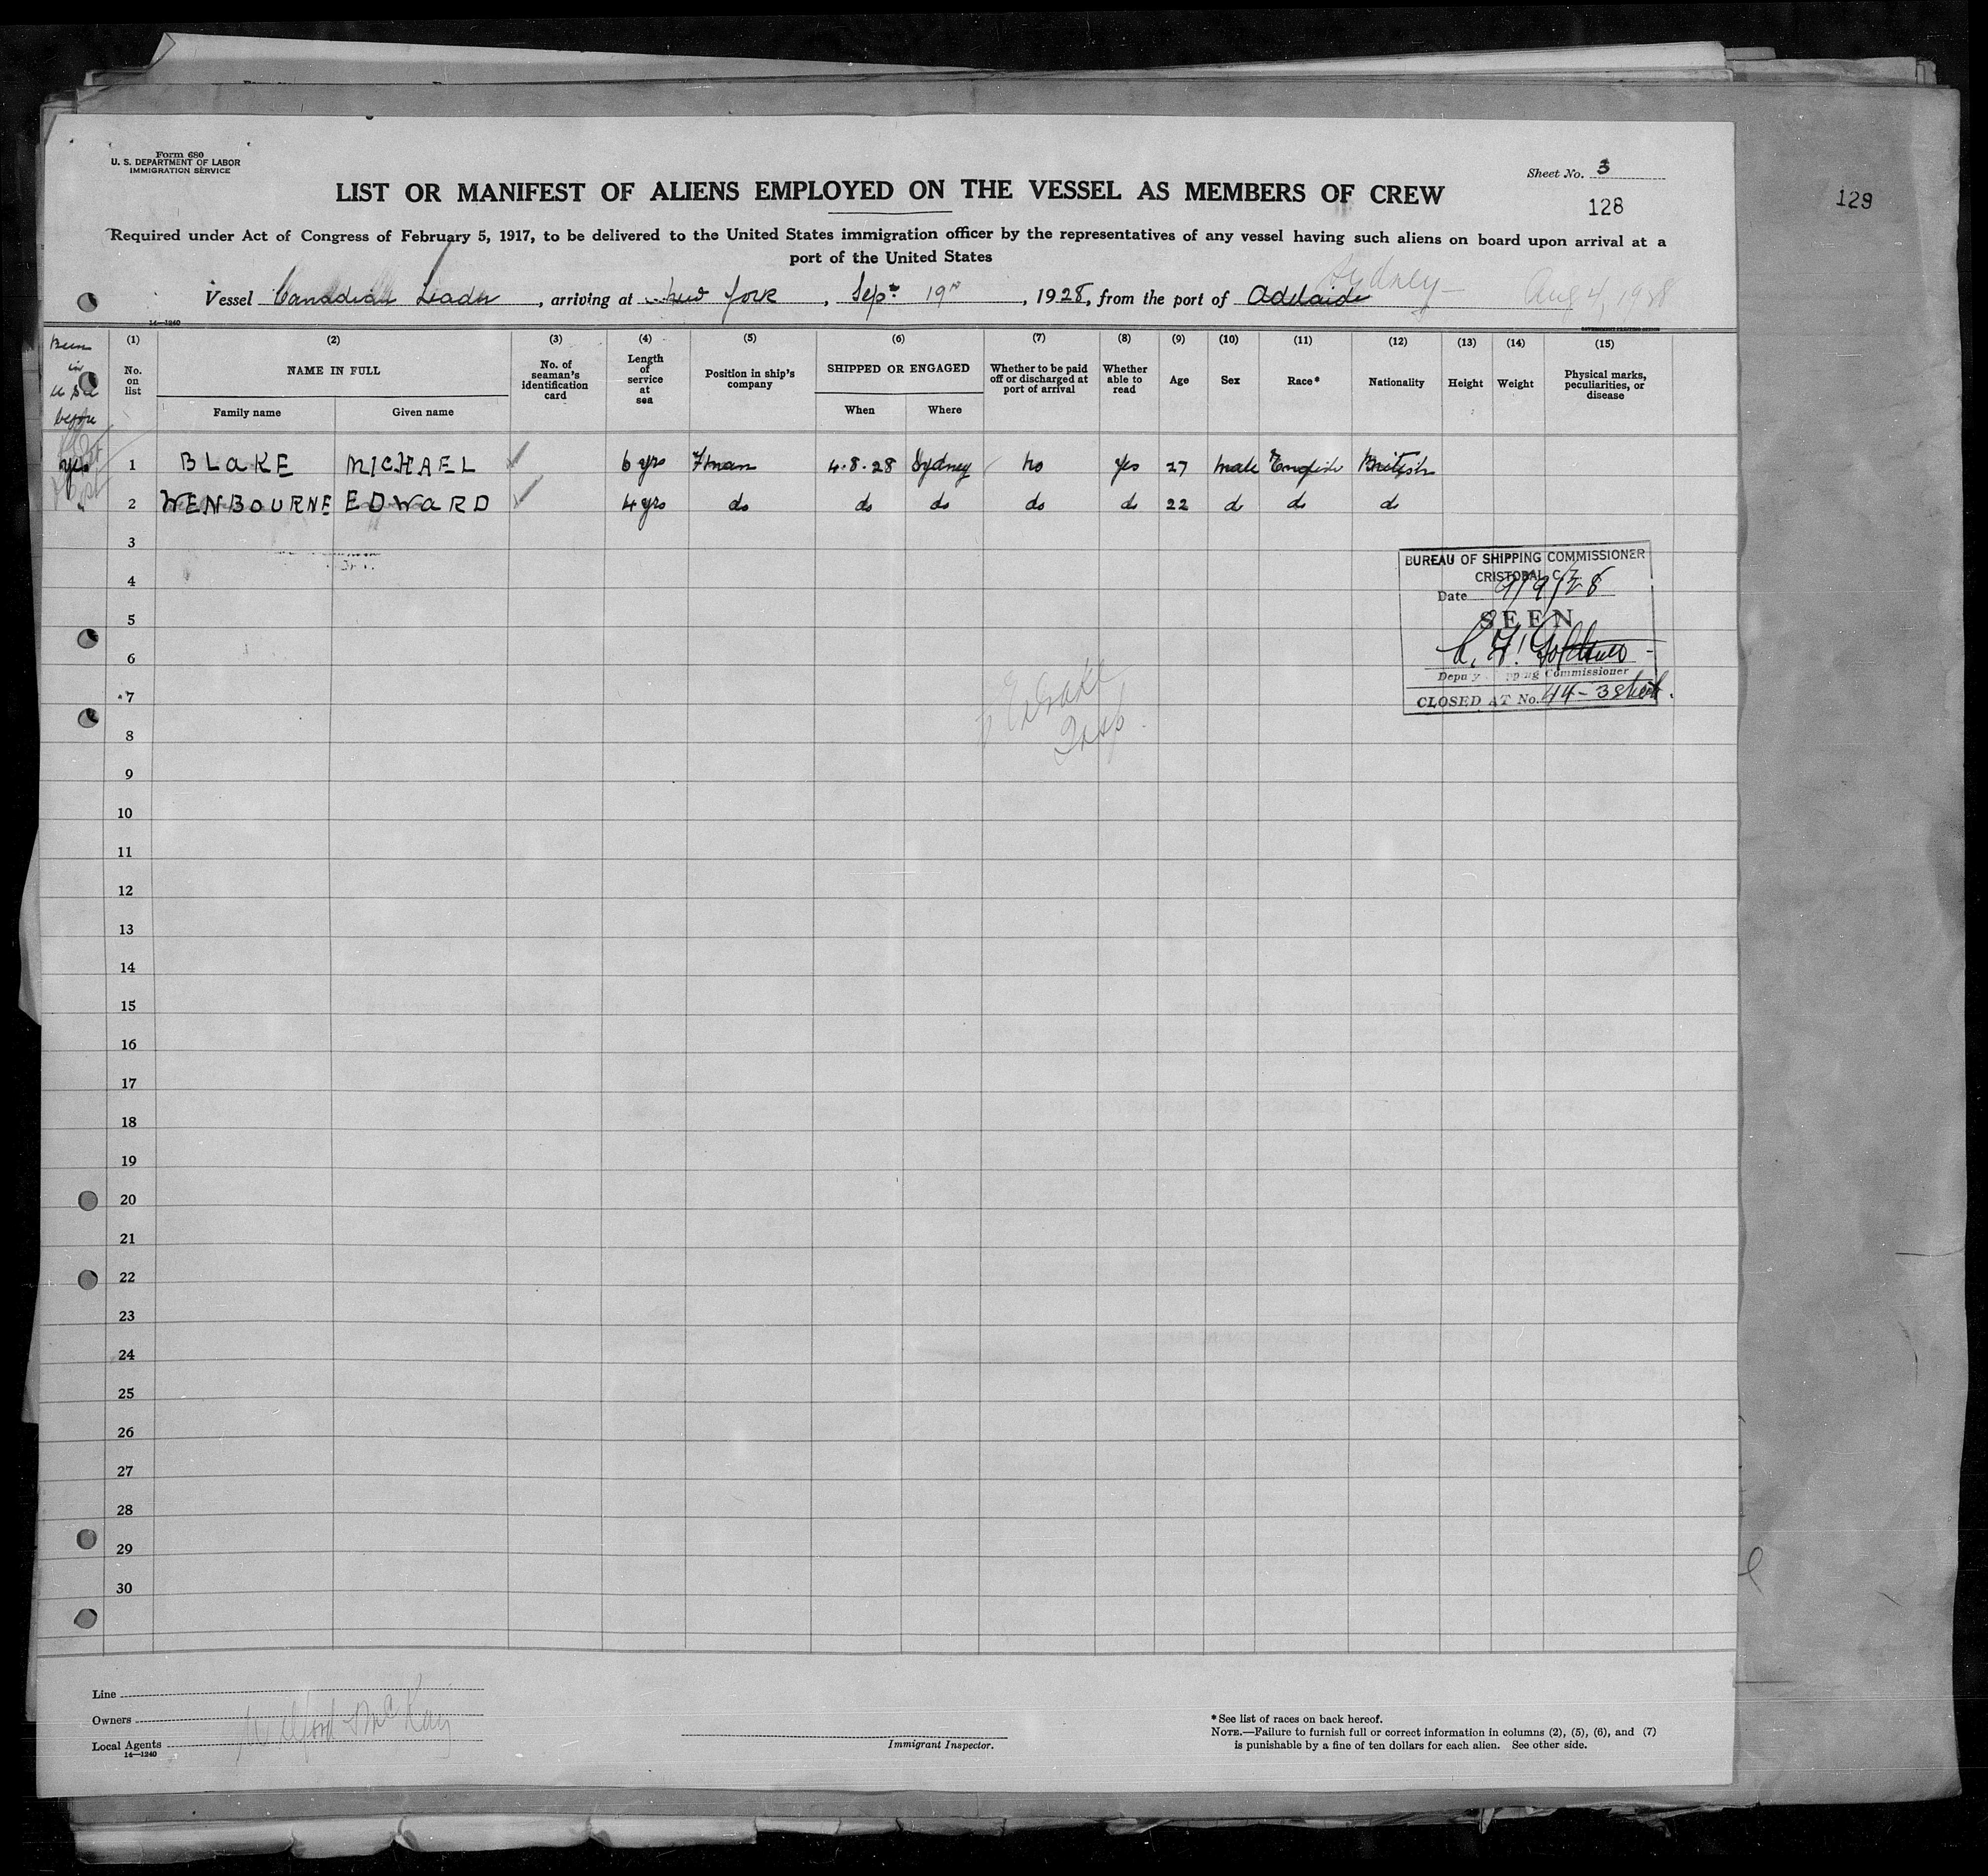 Form 680
U. S. DEPARTMENT OF LABOR
IMMIGRATION SERVICE
Sheet No. 3
LIST OR MANIFEST OF ALIENS EMPLOYED ON THE VESSEL AS MEMBERS OF CREW
128
129
Required under Act of Congress of February 5, 1917, to be delivered to the United States immigration officer by the representatives of any vessel having such aliens on board upon arrival at a
port of the United States
Sydney
Vessel Canadian Leader, arriving at New York, Sept 19th, 1928, from the port of Adelaide Aug 4, 1928
14—1240
GOVERNMENT PRINTING OFFICE
Been in U S A before
(1) No. on list
(2) NAME IN FULL
Family name Given name
(3) No. of seaman's identification card
(4) Length of service at sea
(5) Position in ship's company
(6) SHIPPED OR ENGAGED
When Where
(7) Whether to be paid off or discharged at port of arrival
(8) Whether able to read
(9) Age
(10) Sex
(11) Race*
(12) Nationality
(13) Height
(14) Weight
(15) Physical marks, peculiarities, or disease
yes 1 BLAKE MICHAEL 6 yrs Fman 4.8.28 Sydney no yes 27 male English British
" 2 WENBOURNE EDWARD 4 yrs do do do do do 22 do do do
3
4
5
6
7
8
9
10
11
12
13
14
15
16
17
18
19
20
21
22
23
24
25
26
27
28
29
30
BUREAU OF SHIPPING COMMISSIONER
CRISTOBAL, C. Z.
Date 9/9/28
SEEN
Deputy Shipping Commissioner
CLOSED AT No. 44 - 3 sheets.
Insp.
Line
Owners
Local Agents
McKay
14—1240
Immigrant Inspector.
*See list of races on back hereof.
NOTE.—Failure to furnish full or correct information in columns (2), (5), (6), and (7)
is punishable by a fine of ten dollars for each alien. See other side.